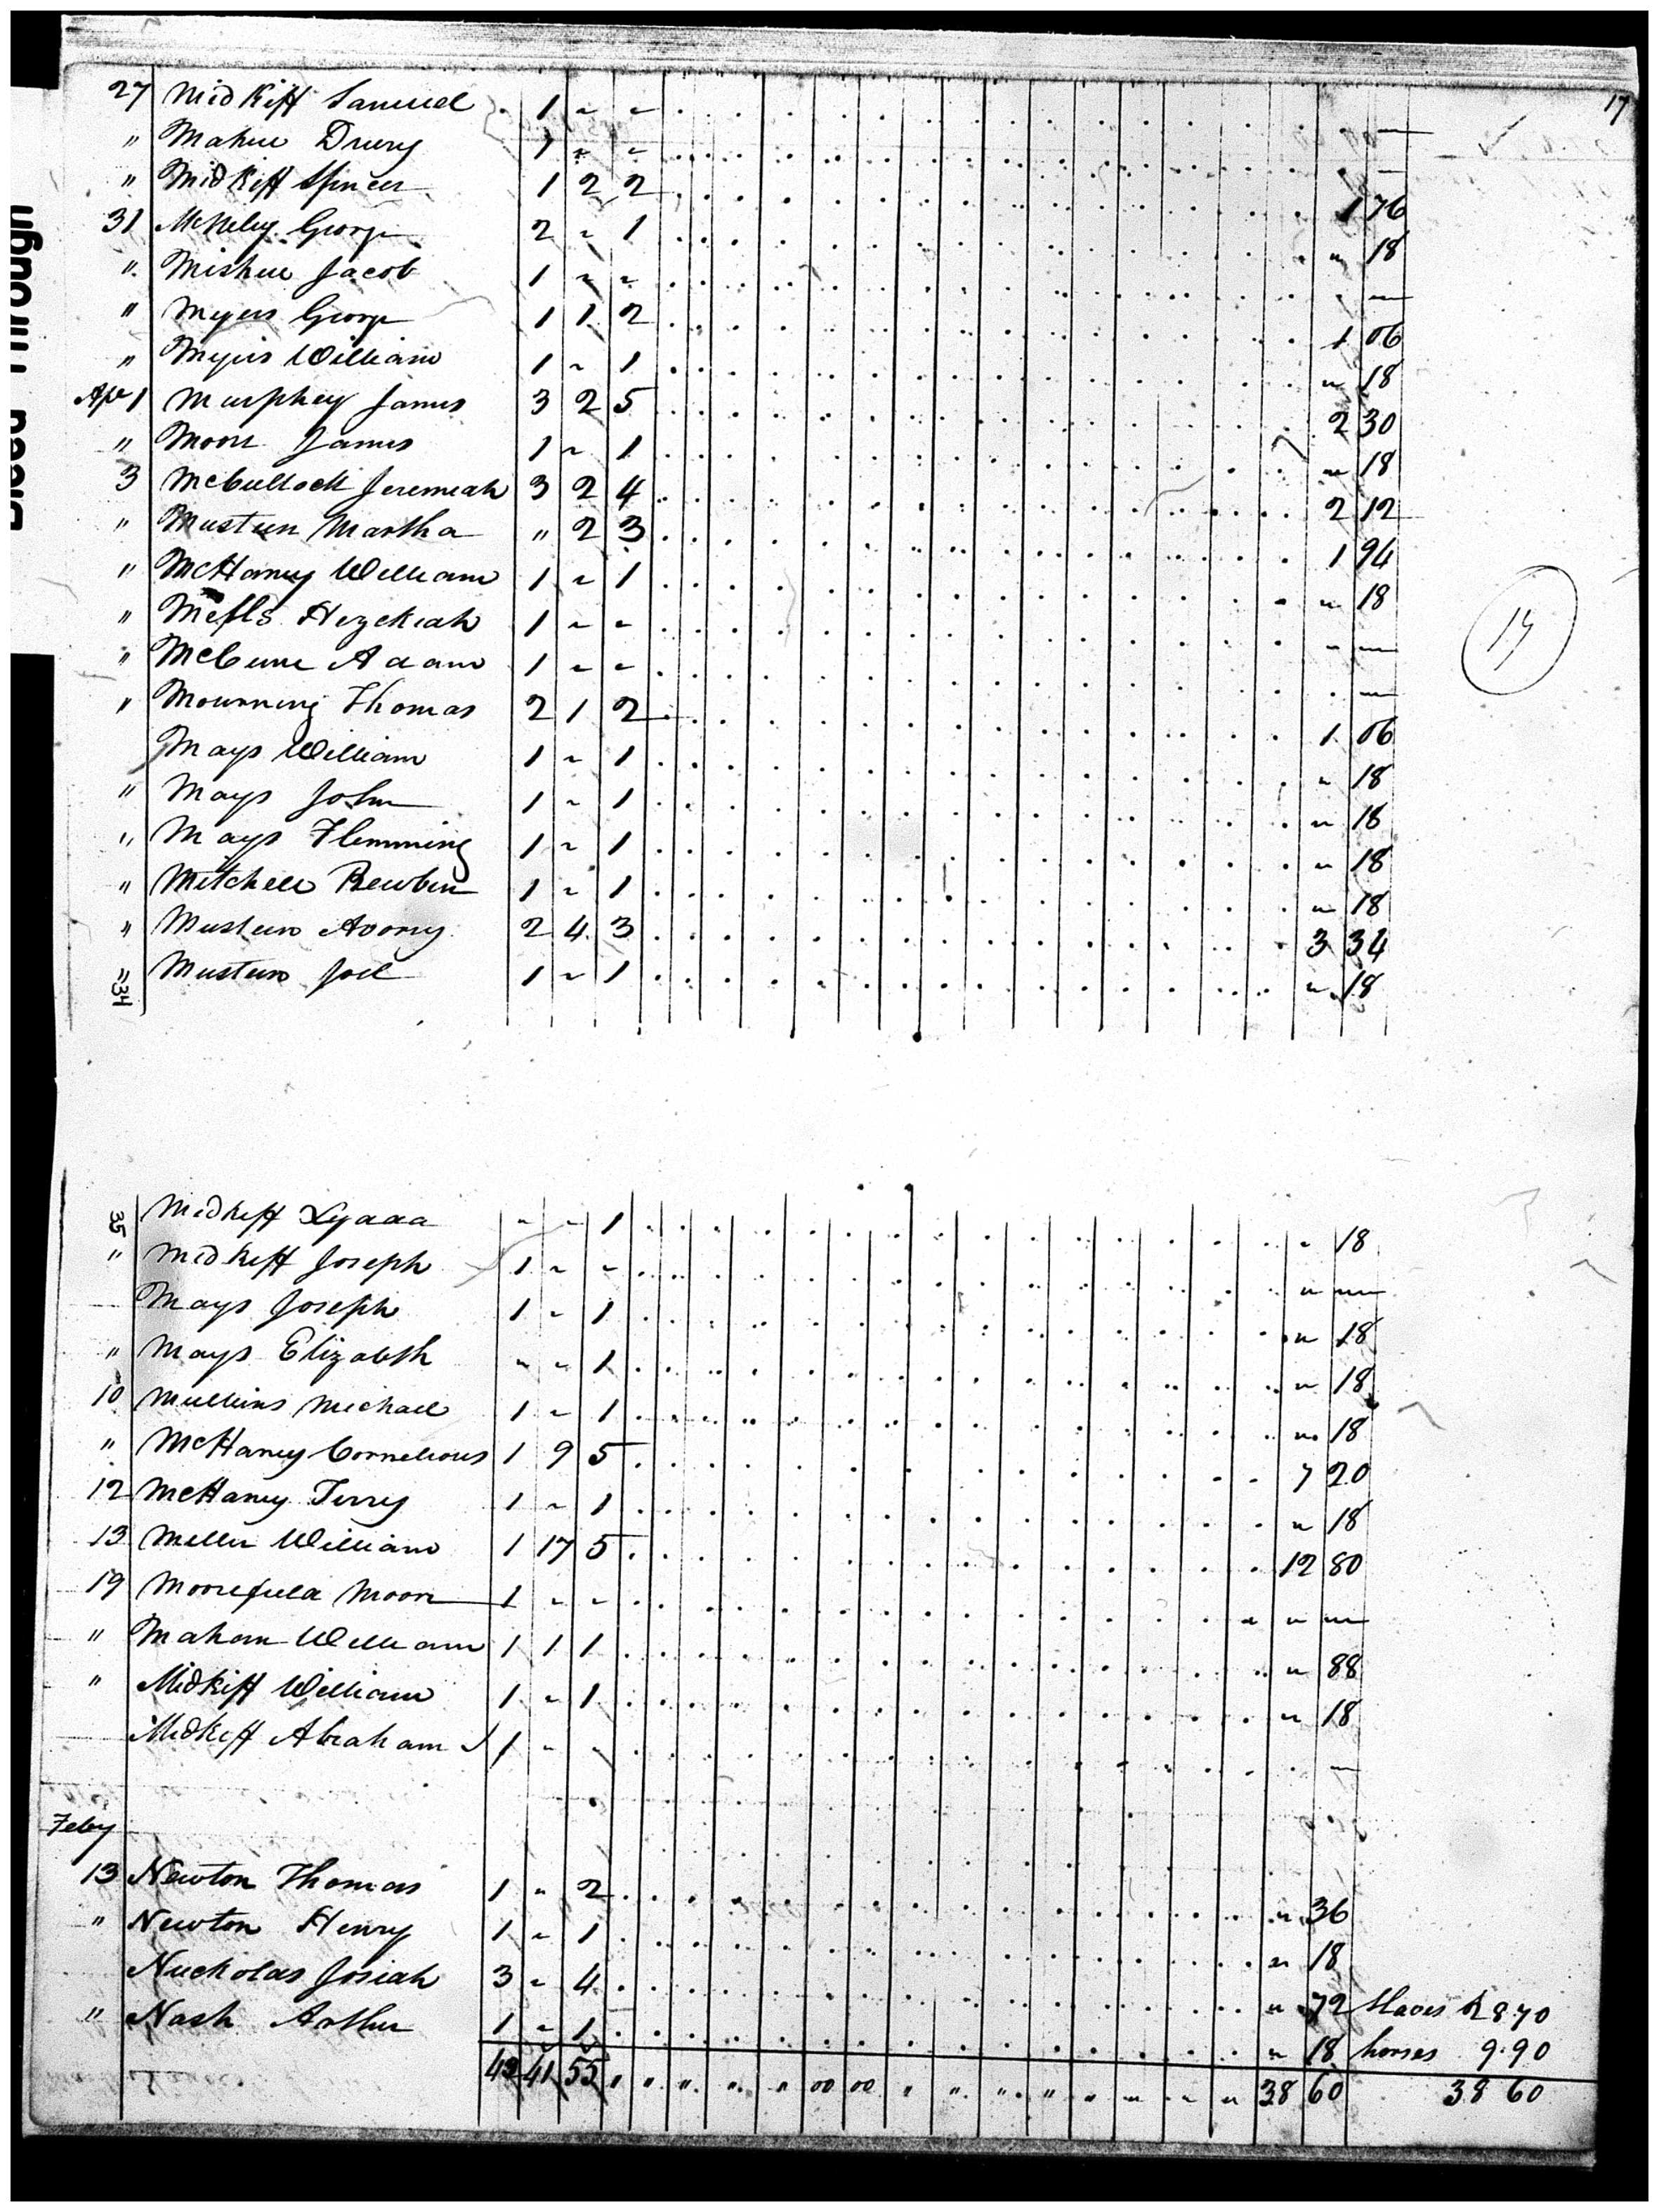 17
27 Midkiff Samuel 1 " "
" Mahue Drury 1 " "
" Midkiff Spencer 1 2 2 1 76
31 McNeley George 2 " 1 " 18
" Mishue Jacob 1 " "
" Myers George 1 1 2 1 06
" Myers William 1 " 1 " 18
Apr 1 Murphey James 3 2 5 2 30
" Moore James 1 " 1 " 18
3 McCullock Jeremiah 3 2 4 2 12
" Musteen Martha " 2 3 1 94
" McHaney William 1 " 1 " 18
" Hezekiah 1 " " " "
" Adam 1 " "
" Mourning Thomas 2 1 2 1 06
Mays William 1 " 1 " 18
" Mays John 1 " 1 " 18
" Mays Flemming 1 " 1 " 18
" Mitchell Rewbin 1 " 1 " 18
" Musteen Avory 2 4 3 3 34
" 34 Musteen Joel 1 " 1 " 18
17
35 Midkiff 1 " 18
" Midkiff Joseph 1 " " " "
Mays Joseph 1 " 1 " 18
" Mays Elizabeth " " 1 " 18
10 Mullins Michael 1 " 1 " 18
" McHaney Cornelious 1 9 5 7 20
12 McHaney Terry 1 " 1 " 18
13 Miller William 1 17 5 12 80
19 Moorefield Moore 1 " " " "
" Mahan William 1 1 1 " 88
" Midkiff William 1 " 1 " 18
Midkiff Abraham 1 " "
Feby
13 Newton Thomas 1 " 2 " 36
" Newton Henry 1 " 1 " 18
Nuckolas Josiah 3 " 4 " 72 Slaves 28.70
" Nash Arthur 1 " 1 " 18 horses 9.90
42 41 55 " " " " " 00 00 " " " " " " " " 38 60 38 60